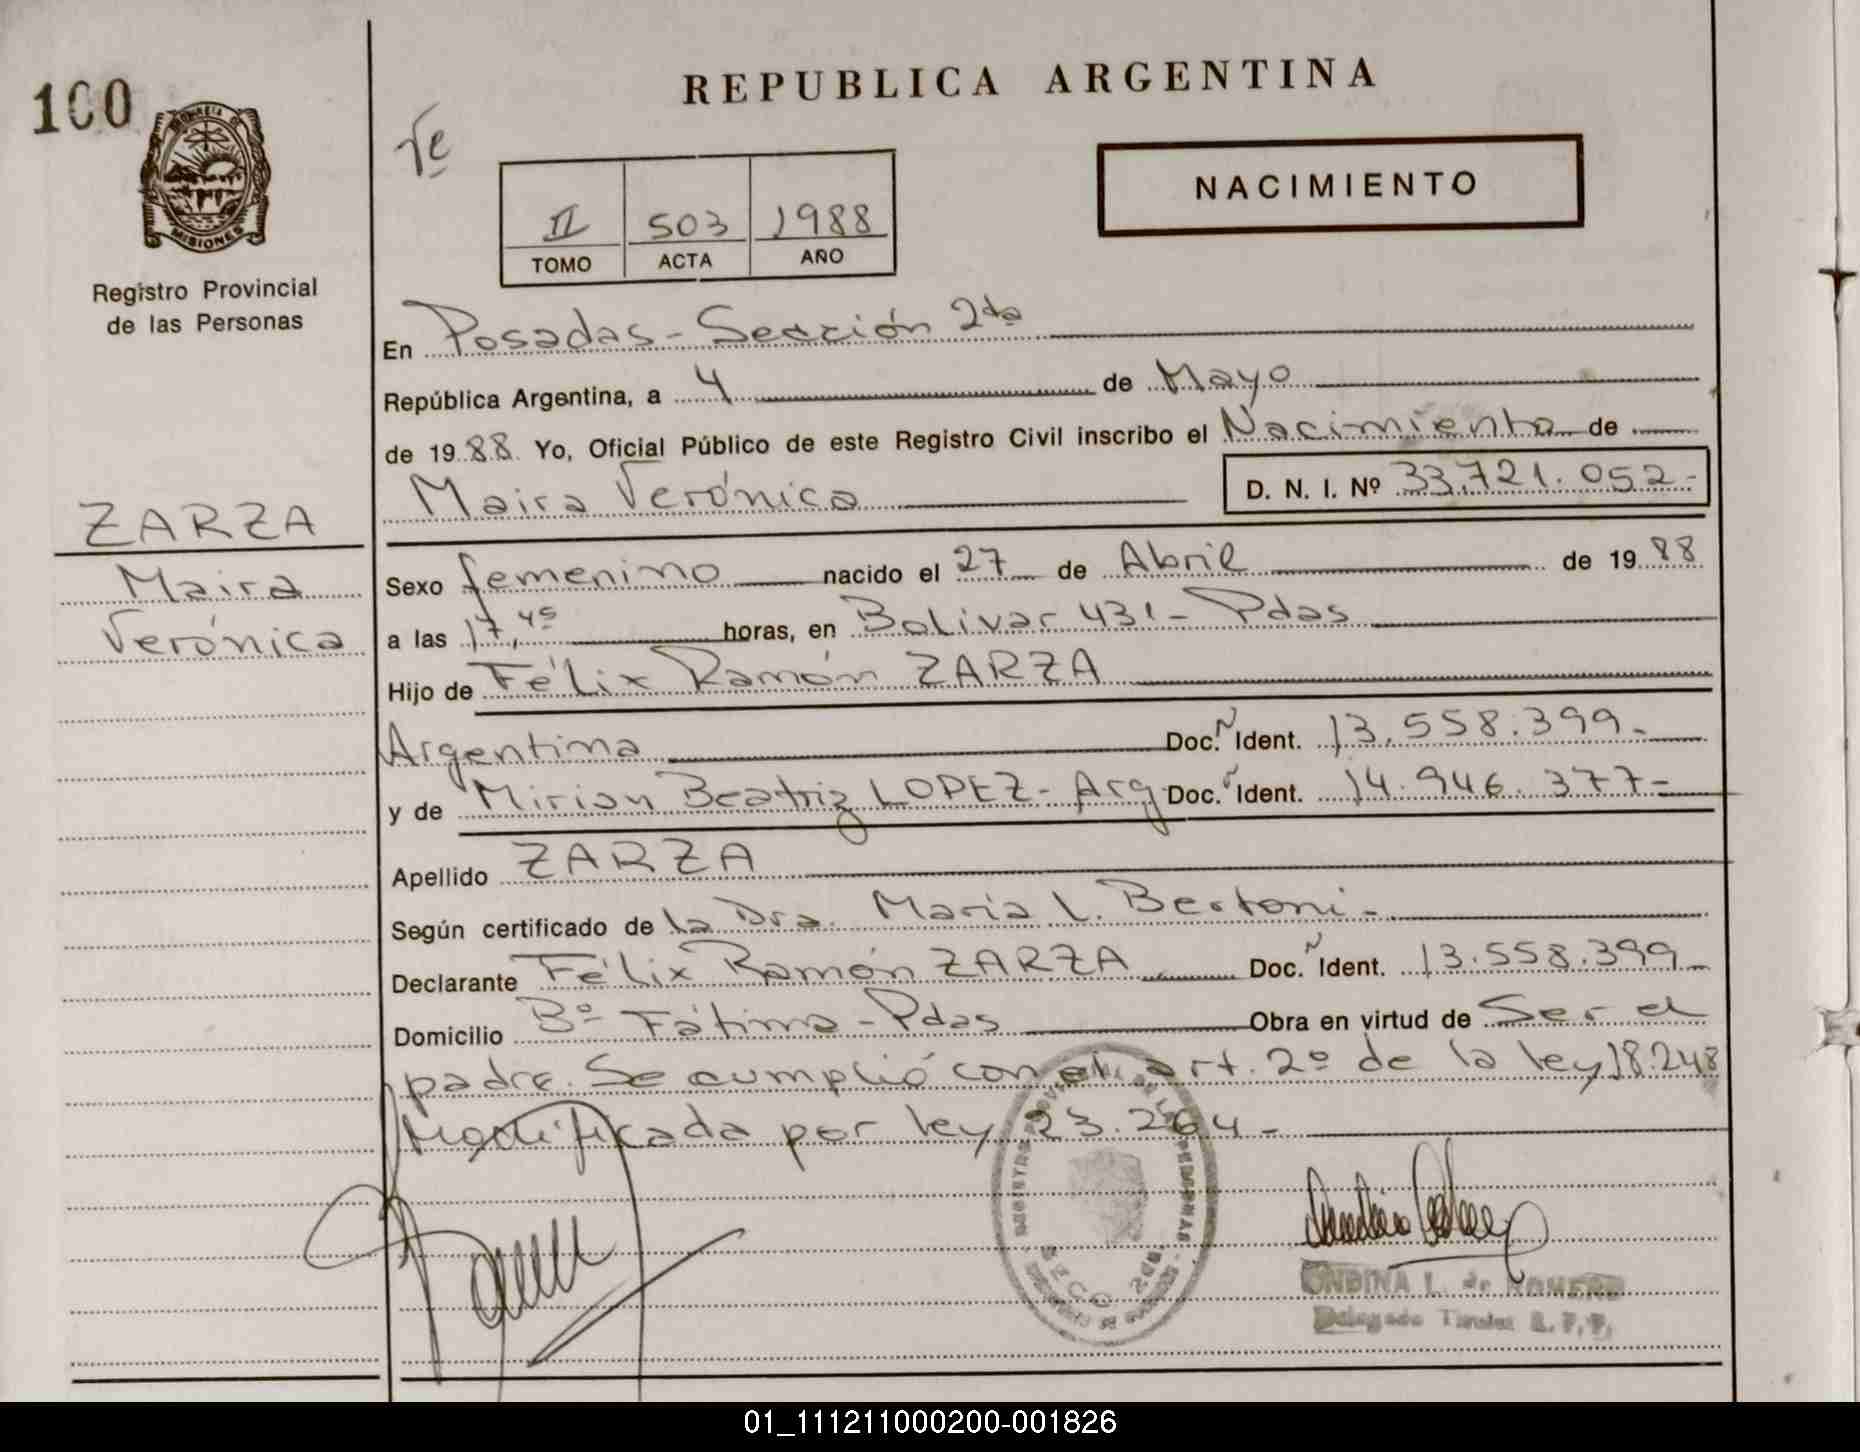 100
MISIONES
Registro Provincial
de las Personas
ZARZA
Maira
Verónica
REPUBLICA ARGENTINA
NACIMIENTO
II 503 1988
TOMO ACTA AÑO
En Posadas - Sección 2da
República Argentina, a 4 de Mayo
de 1988 Yo, Oficial Público de este Registro Civil inscribo el Nacimiento de
Maira Verónica D. N. I. Nº 33.721.052-
Sexo femenino nacido el 27 de Abril de 1988
a las 17,45 horas, en Bolivar 431 - Pdas
Hijo de Félix Ramón ZARZA
Argentina Doc. Ñ Ident. 13.558.399.-
y de Mirian Beatriz LOPEZ - Arg Doc. Ident. 14.946.377-
Apellido ZARZA
Según certificado de la Dra. María L. Bertoni -
Declarante Félix Ramón ZARZA Doc. Ñ Ident. 13.558.399-
Domicilio Bº Fátima - Pdas Obra en virtud de Ser el
padre. Se cumplió con el art. 2º de la ley 18.248
Modificada por ley 23.264 -
ONDINA L. de ROMERO
Delegado Titular R. P. P.
01_111211000200-001826